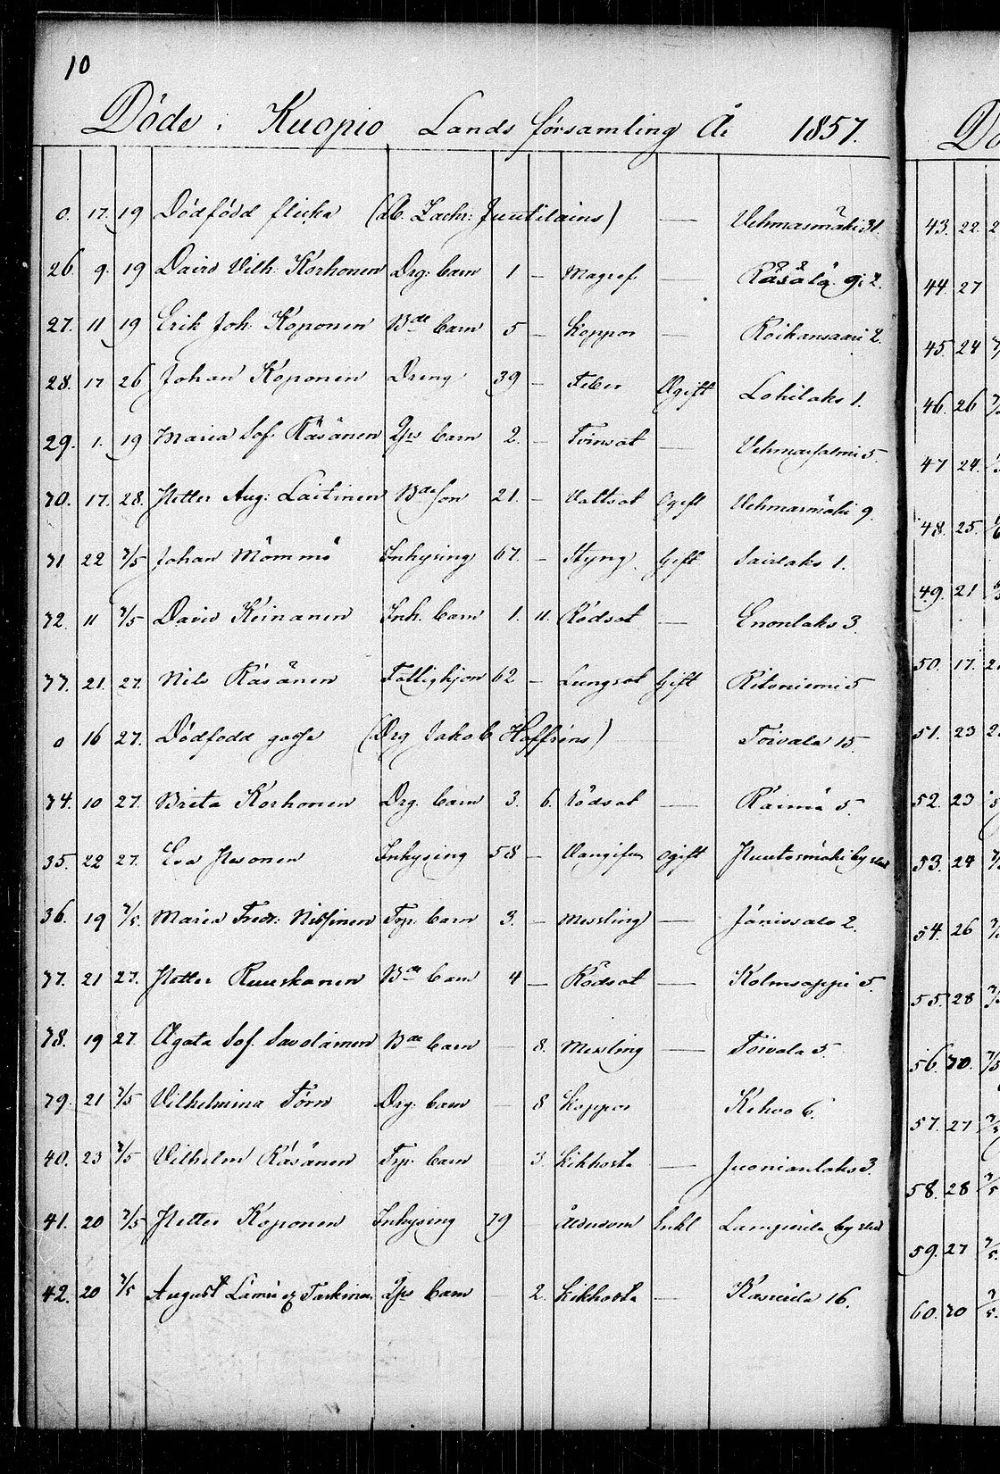 10
Döde i Kuopio Lands församling År 1857.
0. 17. 19 Dödfödd flicka (Zachr: Juutilains) — Vehmasmäki 31.
26. 9. 19 David Vilh. Korhonen Drg. barn 1 — Magref. — Räsälä 9: 2.
27. 11 19 Erik Joh. Koponen Bde barn 5 — Koppor — Roikansaari 2.
28. 17 26 Johan Koponen Dreng 39 — Feber Ogift Lohilaks 1.
29. 1. 19 Maria Sof. Räsänen barn 2. — Tvinsot — Vehmasalmi 5.
30. 17. 28. Petter Aug: Laitinen Bde son 21. — Vattsot Ogift Vehmasmäki 9.
31 22 3/5 Johan Mömmö Inhysing 67. — Styng. Gift Savilaks 1.
32. 11 3/5 David Keinanen Inh. barn 1. 11. Rödsot — Enonlaks 3.
33. 21. 27. Nils Räsänen Fattighjon 62 — Lungsot Gift Ritoniemi 5
0 16 27. Dödfödd gosse (Drg Jakob Hoffréns) Toivala 15.
34. 10 27. Brita Korhonen Drg. barn 3. 6. Rödsot — Räimä 5.
35. 22 27. Eva Pesonen Inhysing 58 — Ogift
36. 19 3/5. Maria Fredr: Nissinen Trp. barn 3. — Messling — Jänissalo 2.
37. 21 27. Petter Ruuskanen Bde barn 4 — Rödsot — Kolmsoppi 5.
38. 19 27. Agata Sof. Savolainen Bde barn 8. Messling — Toivala 5.
39. 21 3/5 Vilhelmina Törn Drg. barn — 8 Koppor Kehvo 6.
40. 23 3/5 Vilhelm Räsänen Trp. barn 3. Kikhosta — Juonionlaks 3.
41. 20 3/5 Petter Koponen Inhysing 79 Ålderdom Enkl
42. 20 3/5 August barn 2. Kikhosta — Kasurila 16.
Dö
43. 22. 2
44. 27
45. 24
46. 26
47 24.
48. 25.
49. 21
50. 17. 2
51. 23 2
52. 23
53. 24
54. 26
55. 28
56. 30.
57. 27
58. 28
59. 27
60. 30